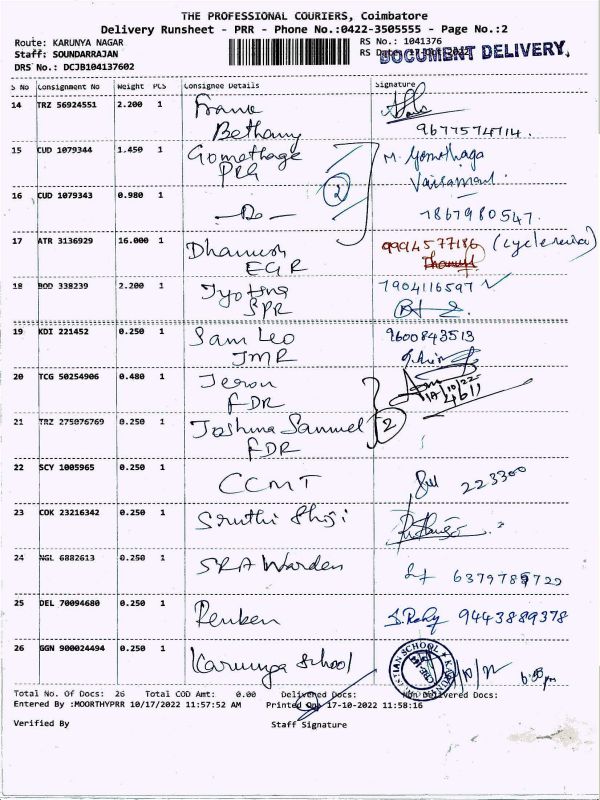 THE PROFESSIONAL COURIERS, Coimbatore
Delivery Runsheet - PRR - Phone No.:0422-3505555 - Page No.:2
Route: KARUNYA NAGAR
RS No.: 1041376
Staff: SOUNDARRAJAN
RS Date: 17-Oct-2022
DOCUMENT DELIVERY
DRS No.: DCJB104137602
S No Consignment No Weight PCS Consignee Details Signature
14 TRZ 56924551 2.200 1
Bethany
15 CUD 1079344 1.450 1 Gomathage M. Gomathaga
PRG
16 CUD 1079343 0.980 1 -Do- 2 7867980547.
17 ATR 3136929 16.000 1 Dhanush 9994577186
EGR
18 BOD 338239 2.200 1 7904116597
SPR
19 KDI 221452 0.250 1 Sam Leo 9600843513
JMR
20 TCG 50254906 0.480 1
FDR
21 TRZ 275076769 0.250 1 Joshua Samuel 2
FDR
22 SCY 1005965 0.250 1 CCMT 223300
23 COK 23216342 0.250 1 Sruthi Shoji
24 NGL 6882613 0.250 1 SRA Warden
25 DEL 70094680 0.250 1 Reuben 9443889378
26 GGN 900024494 0.250 1 Karunya School
Total No. Of Docs: 26 Total COD Amt: 0.00 Delivered Docs: Non Delivered Docs:
Entered By :MOORTHYPRR 10/17/2022 11:57:52 AM Printed On: 17-10-2022 11:58:16
Verified By Staff Signature